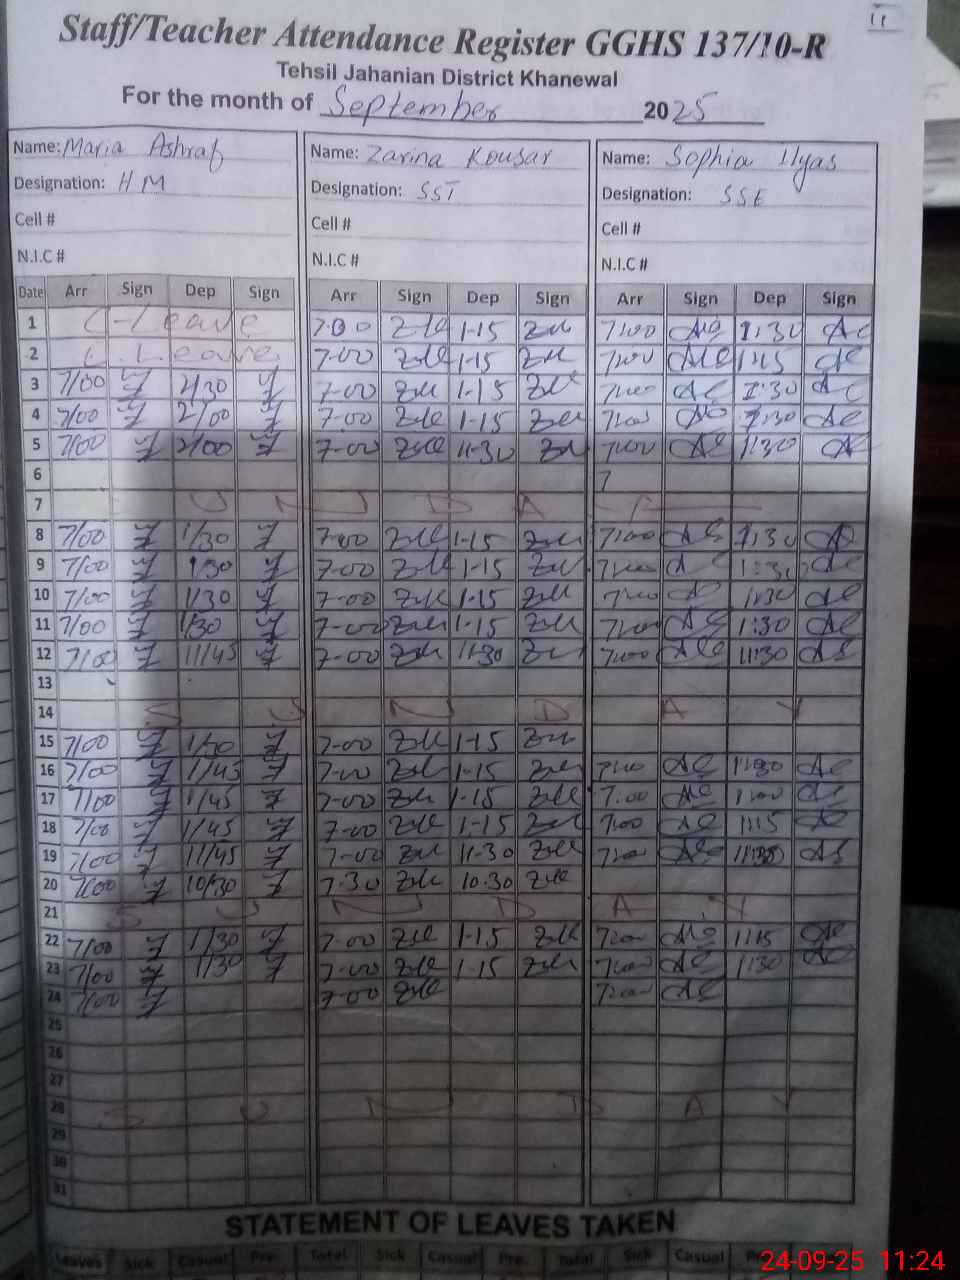 11
Staff/Teacher Attendance Register GGHS 137/10-R
Tehsil Jahanian District Khanewal
For the month of September 2025
Name: Maria Ashraf Name: Zarina Kousar Name: Sophia Ilyas
Designation: HM Designation: SST Designation: SSE
Cell # Cell # Cell #
N.I.C # N.I.C # N.I.C #
Date Arr Sign Dep Sign Arr Sign Dep Sign Arr Sign Dep Sign
1 C-Leave 7:00 1-15 7:00 1:30
2 C.Leave 7-00 1-15 7:00 1:15
3 7/00 2/30 7-00 1-15 7:00 1:30
4 7/00 2/00 7-00 1-15 7:00 1:30
5 7/00 2/00 7-00 11-30 7:00 11:30
6 7
7 S U N D A Y
8 7/00 1/30 7-00 1-15 7:00 1:30
9 7/00 1/30 7-00 1-15 7:00 1:30
10 7/00 1/30 7-00 1-15 7:00 1:30
11 7/00 1/30 7-00 1-15 7:00 1:30
12 7/00 11/45 7-00 11-30 7:00 11:30
13
14 S U N D A Y
15 7/00 1/30 7-00 1-15
16 7/00 1/45 7-00 1-15 7:00 1:30
17 7/00 1/45 7-00 1-15 7:00 1:00
18 7/00 1/45 7-00 1-15 7:00 1:15
19 7/00 11/45 7-00 11-30 7:00 11:30
20 7/00 10/30 7.30 10.30
21 S U N D A Y
22 7/00 1/30 7-00 1-15 7:00 1:15
23 7/00 1/30 7-00 1-15 7:00 1:30
24 7/00 7-00 7:00
25
26
27
28 S U N D A Y
29
30
31
STATEMENT OF LEAVES TAKEN
Leaves Sick Casual Pre. Total Sick Casual Pre. Total Sick Casual
24-09-25 11:24